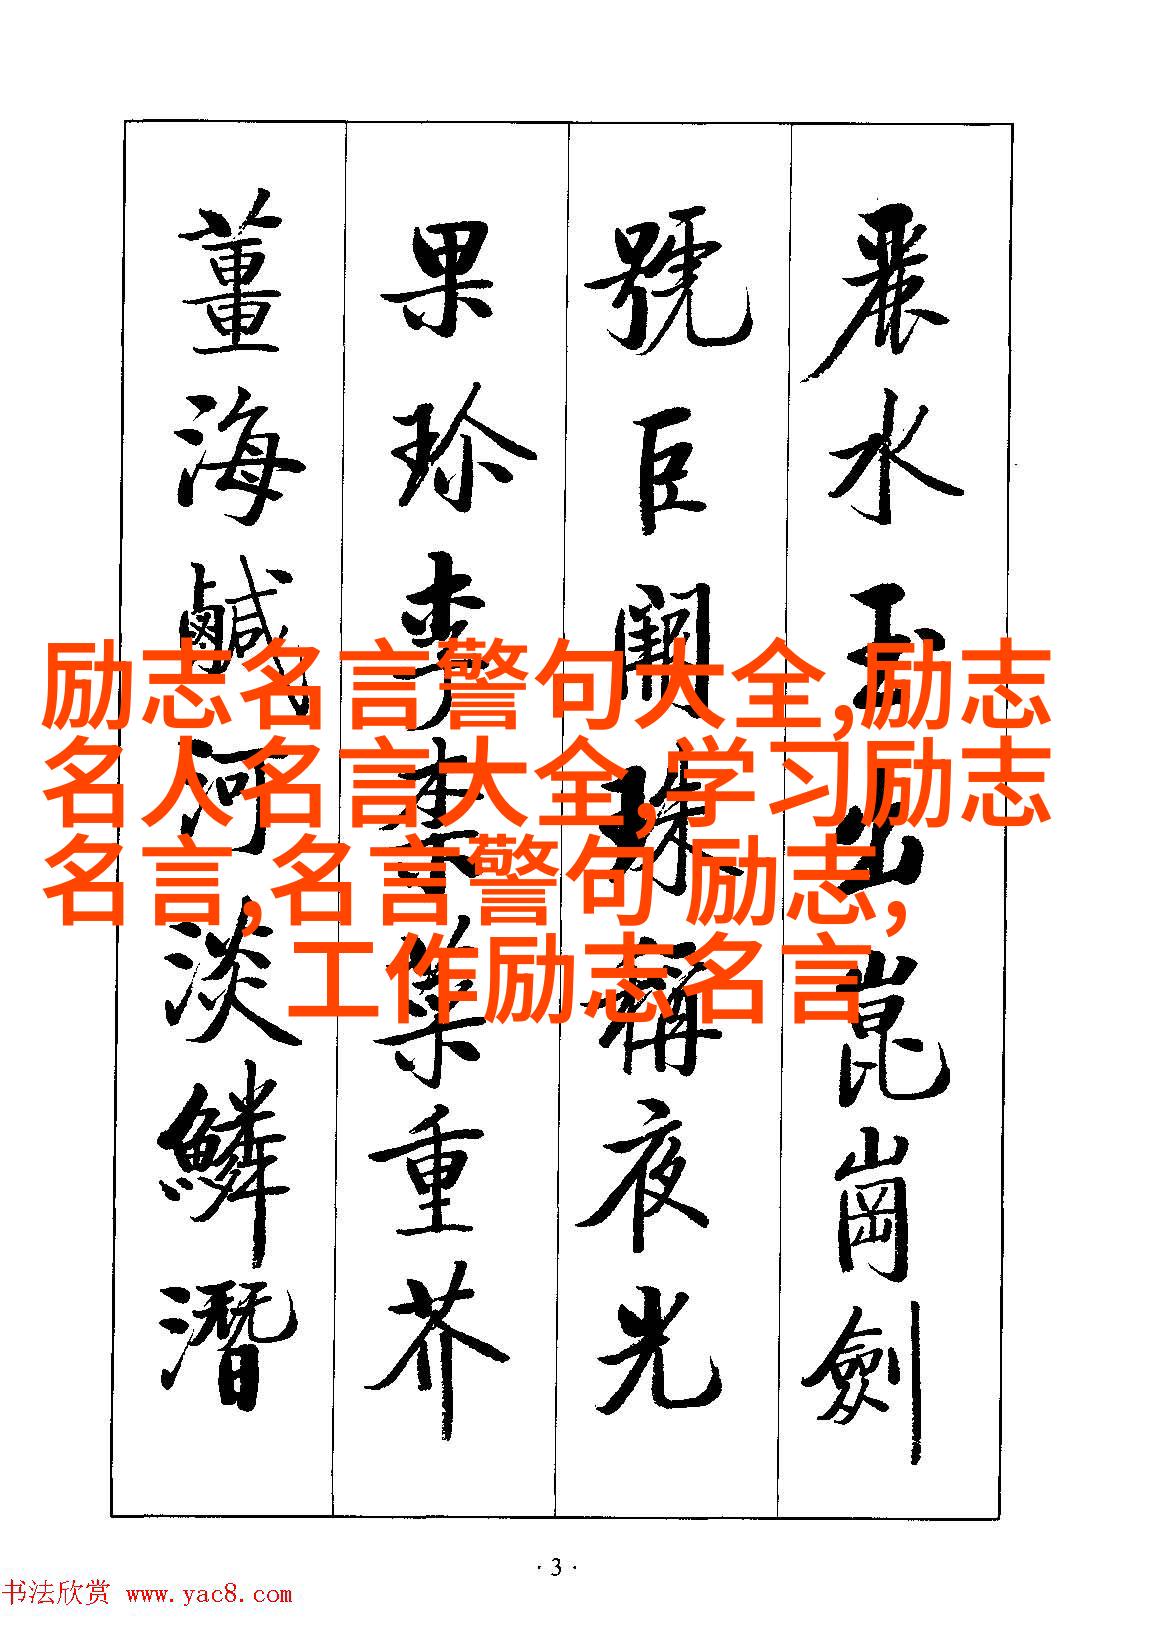 麗水玉出崑崗劍
號巨闕珠稱夜光
果珍李柰菜重芥
薑海鹹河淡鱗潛
励志名言警句大全,励志
名人名言大全,学习励志
名言,名言警句 励志,
工作励志名言
·3·
书法欣赏 www.yac8.com